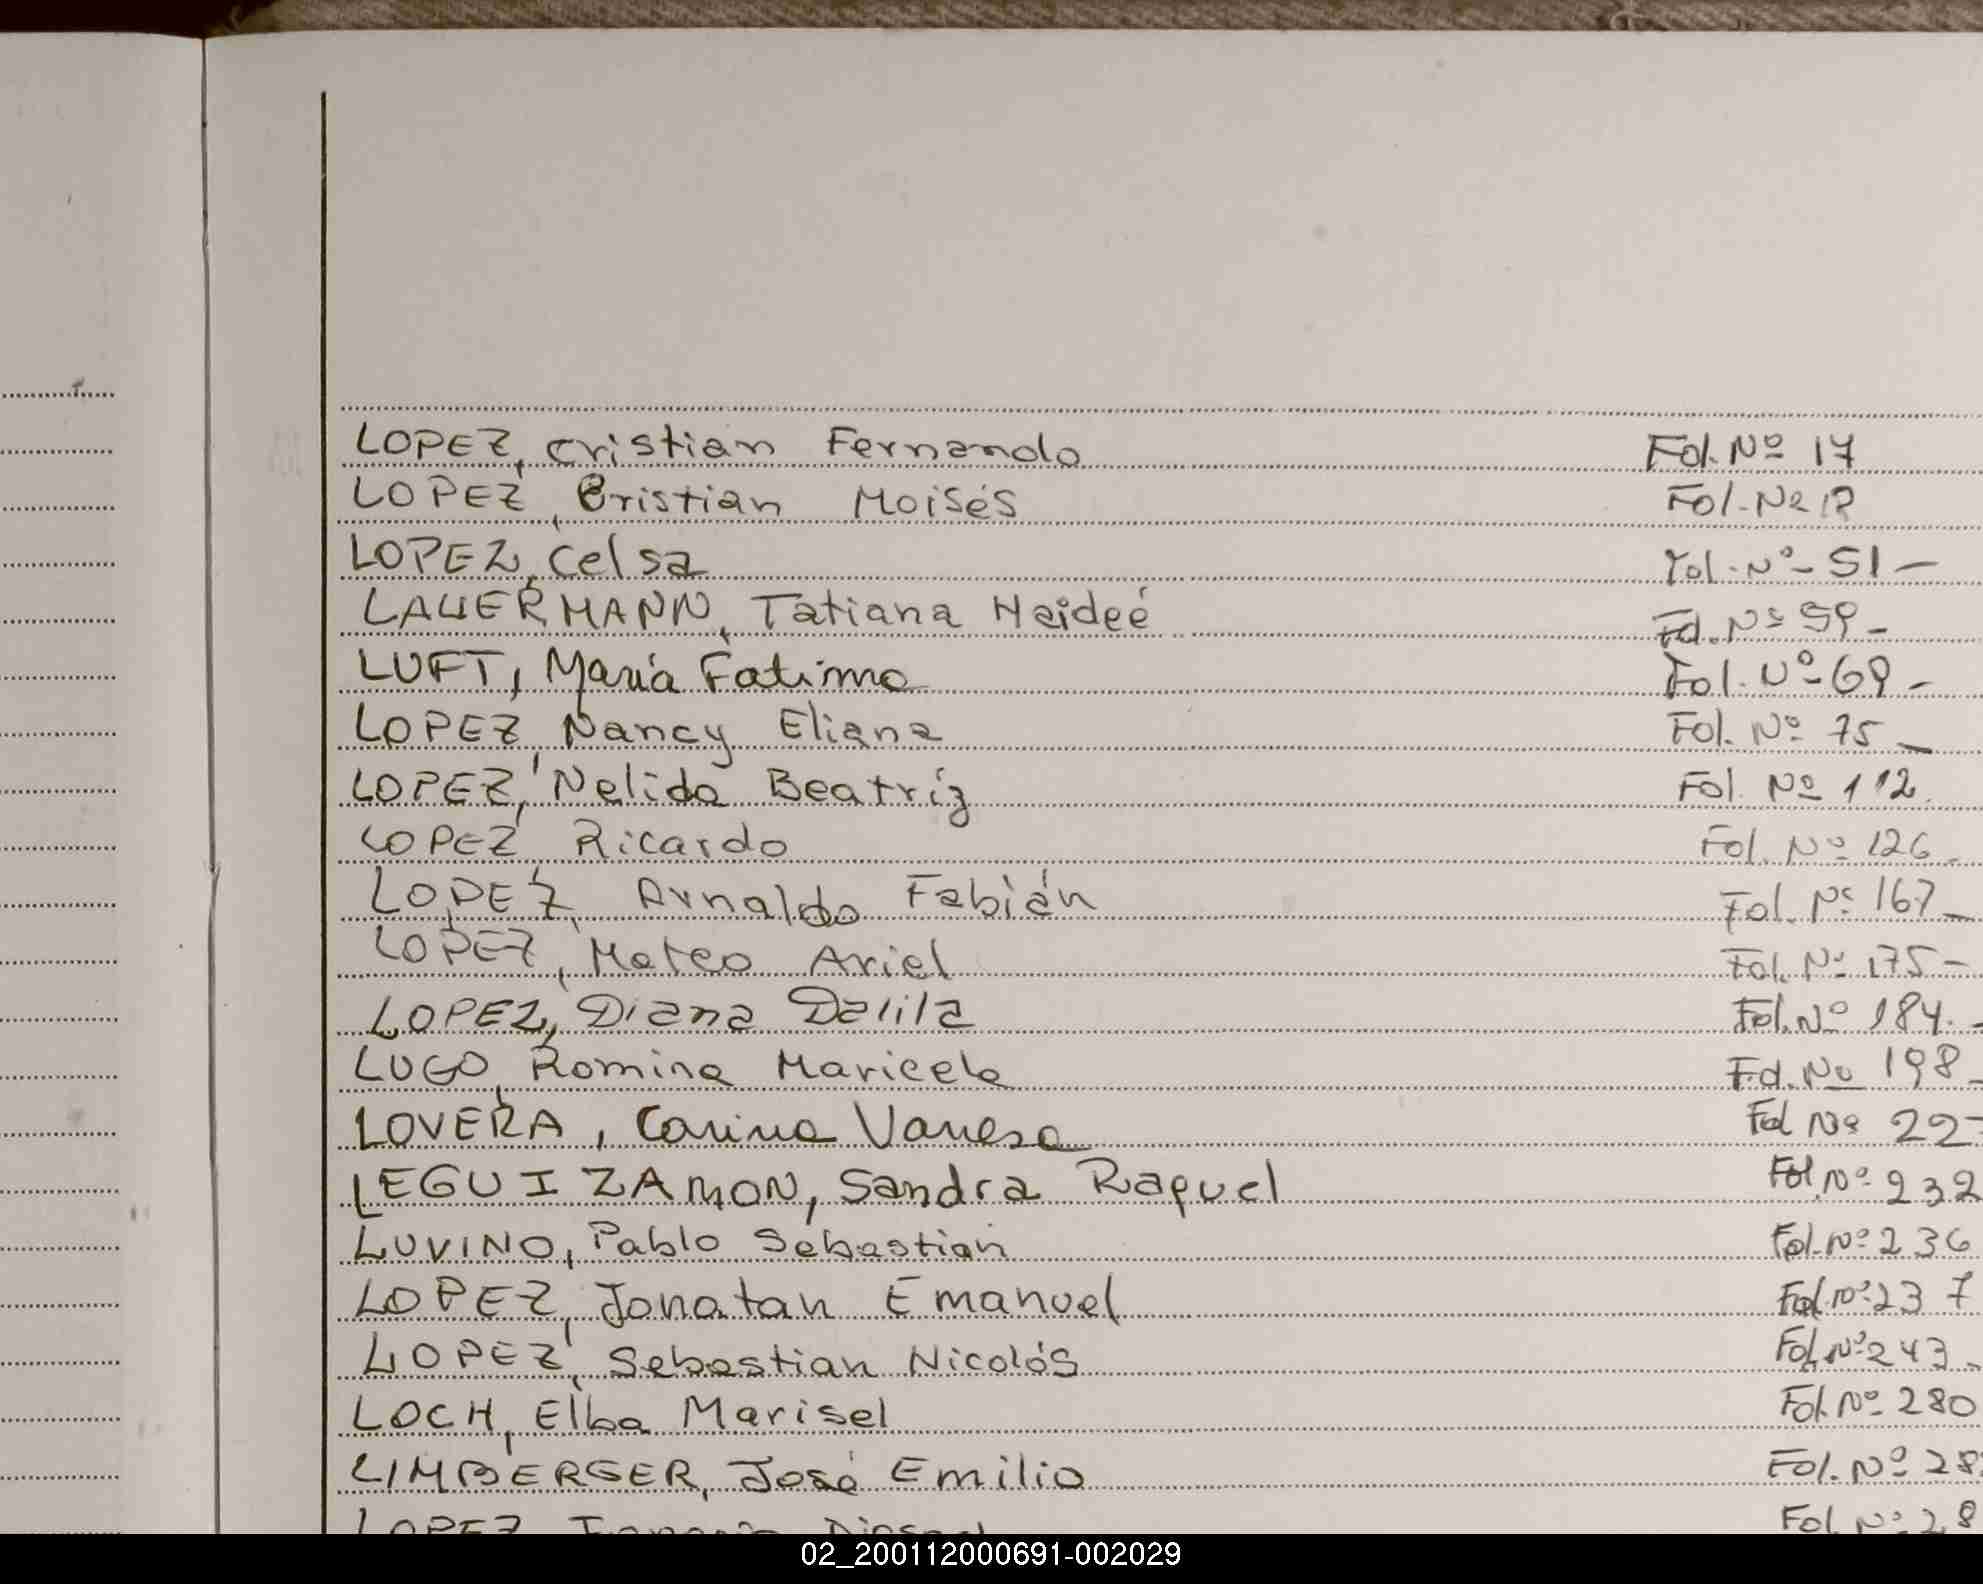 LOPEZ, Cristian Fernando Fol. Nº 17
LOPEZ, Cristian Moisés Fol. Nº
LOPEZ, Celsa Fol. Nº 51 -
LAUERMANN, Tatiana Haideé Fol. Nº 59 -
LUFT, María Fatima Fol. Nº 69 -
LOPEZ, Nancy Eliana Fol. Nº 75 -
LOPEZ, Nelida Beatriz Fol. Nº 112
LOPEZ, Ricardo Fol. Nº 126 -
LOPEZ, Arnaldo Fabián Fol. Nº 167 -
LOPEZ, Mateo Ariel Fol. Nº 175 -
LOPEZ, Diana Dalila Fol. Nº 184. -
LUGO, Romina Maricela Fol. Nº 198 -
LOVERA, Carina Vanesa Fol Nº
LEGUIZAMON, Sandra Raquel Fol. Nº 232
LUVINO, Pablo Sebastian Fol. Nº 236
LOPEZ, Jonatan Emanuel Fol. Nº 237
LOPEZ, Sebastian Nicolás Fol. Nº 243 -
LOCH, Elba Marisel Fol. Nº 280
LIMBERGER, José Emilio Fol. Nº
LOPEZ Fol. Nº
02_200112000691-002029